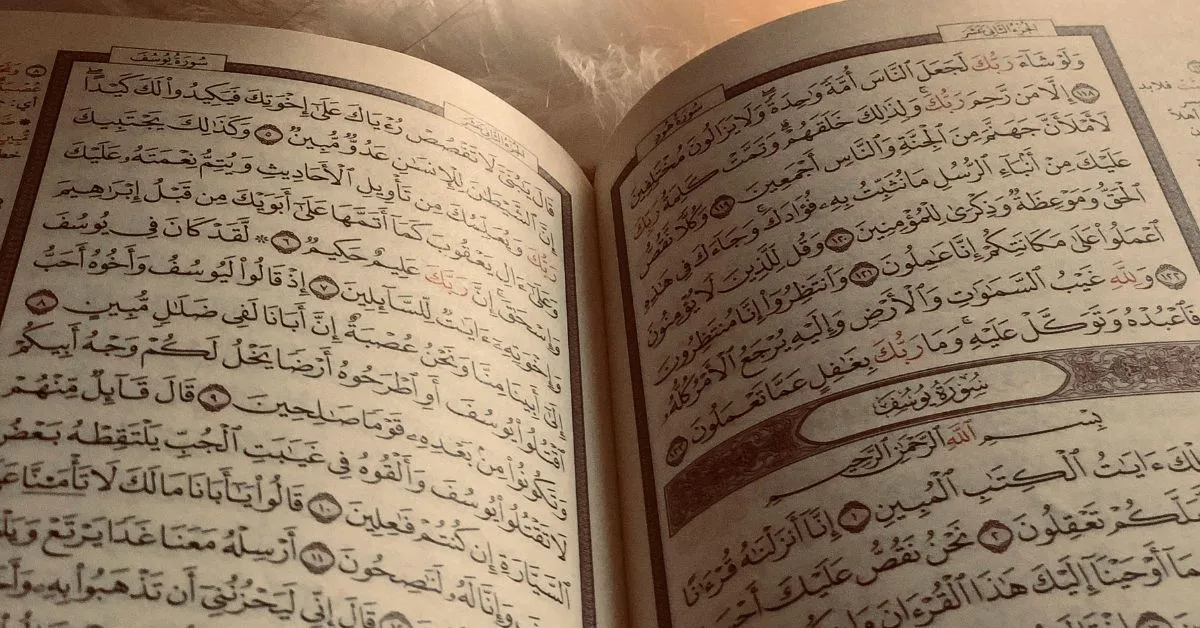 الجزء الثاني عشر
سورة هود
وَلَوْ شَآءَ رَبُّكَ لَجَعَلَ ٱلنَّاسَ أُمَّةً وَٰحِدَةً وَلَا يَزَالُونَ مُخْتَلِفِينَ
١١٨ إِلَّا مَن رَّحِمَ رَبُّكَ وَلِذَٰلِكَ خَلَقَهُمْ وَتَمَّتْ كَلِمَةُ رَبِّكَ
لَأَمْلَأَنَّ جَهَنَّمَ مِنَ ٱلْجِنَّةِ وَٱلنَّاسِ أَجْمَعِينَ ١١٩ وَكُلًّا نَّقُصُّ
عَلَيْكَ مِنْ أَنۢبَآءِ ٱلرُّسُلِ مَا نُثَبِّتُ بِهِۦ فُؤَادَكَ وَجَآءَكَ فِى هَٰذِهِ
ٱلْحَقُّ وَمَوْعِظَةٌ وَذِكْرَىٰ لِلْمُؤْمِنِينَ ١٢٠ وَقُل لِّلَّذِينَ لَا يُؤْمِنُونَ
ٱعْمَلُوا۟ عَلَىٰ مَكَانَتِكُمْ إِنَّا عَٰمِلُونَ ١٢١ وَٱنتَظِرُوٓا۟ إِنَّا مُنتَظِرُونَ
١٢٢ وَلِلَّهِ غَيْبُ ٱلسَّمَٰوَٰتِ وَٱلْأَرْضِ وَإِلَيْهِ يُرْجَعُ ٱلْأَمْرُ كُلُّهُۥ
فَٱعْبُدْهُ وَتَوَكَّلْ عَلَيْهِ وَمَا رَبُّكَ بِغَٰفِلٍ عَمَّا تَعْمَلُونَ ١٢٣
سورة يوسف
بِسْمِ ٱللَّهِ ٱلرَّحْمَٰنِ ٱلرَّحِيمِ
ءَايَٰتُ ٱلْكِتَٰبِ ٱلْمُبِينِ ١ إِنَّآ أَنزَلْنَٰهُ قُرْءَٰنًا
تَعْقِلُونَ ٢ نَحْنُ نَقُصُّ عَلَيْكَ
أَوْحَيْنَآ إِلَيْكَ هَٰذَا ٱلْقُرْءَانَ
سورة يوسف
الجزء الثاني عشر
قَالَ يَٰبُنَىَّ لَا تَقْصُصْ رُءْيَاكَ عَلَىٰٓ إِخْوَتِكَ فَيَكِيدُوا۟ لَكَ كَيْدًا
إِنَّ ٱلشَّيْطَٰنَ لِلْإِنسَٰنِ عَدُوٌّ مُّبِينٌ ٥ وَكَذَٰلِكَ يَجْتَبِيكَ
رَبُّكَ وَيُعَلِّمُكَ مِن تَأْوِيلِ ٱلْأَحَادِيثِ وَيُتِمُّ نِعْمَتَهُۥ عَلَيْكَ
وَعَلَىٰٓ ءَالِ يَعْقُوبَ كَمَآ أَتَمَّهَا عَلَىٰٓ أَبَوَيْكَ مِن قَبْلُ إِبْرَٰهِيمَ
وَإِسْحَٰقَ إِنَّ رَبَّكَ عَلِيمٌ حَكِيمٌ ٦ ۞ لَّقَدْ كَانَ فِى يُوسُفَ
وَإِخْوَتِهِۦٓ ءَايَٰتٌ لِّلسَّآئِلِينَ ٧ إِذْ قَالُوا۟ لَيُوسُفُ وَأَخُوهُ أَحَبُّ
إِلَىٰٓ أَبِينَا مِنَّا وَنَحْنُ عُصْبَةٌ إِنَّ أَبَانَا لَفِى ضَلَٰلٍ مُّبِينٍ ٨
ٱقْتُلُوا۟ يُوسُفَ أَوِ ٱطْرَحُوهُ أَرْضًا يَخْلُ لَكُمْ وَجْهُ أَبِيكُمْ
وَتَكُونُوا۟ مِنۢ بَعْدِهِۦ قَوْمًا صَٰلِحِينَ ٩ قَالَ قَآئِلٌ مِّنْهُمْ
لَا تَقْتُلُوا۟ يُوسُفَ وَأَلْقُوهُ فِى غَيَٰبَتِ ٱلْجُبِّ يَلْتَقِطْهُ بَعْضُ
ٱلسَّيَّارَةِ إِن كُنتُمْ فَٰعِلِينَ ١٠ قَالُوا۟ يَٰٓأَبَانَا مَا لَكَ لَا تَأْمَ۫نَّا
وَإِنَّا لَهُۥ لَنَٰصِحُونَ ١١ أَرْسِلْهُ مَعَنَا غَدًا يَرْتَعْ
قَالَ إِنِّى لَيَحْزُنُنِىٓ أَن تَذْهَبُوا۟ بِهِۦ